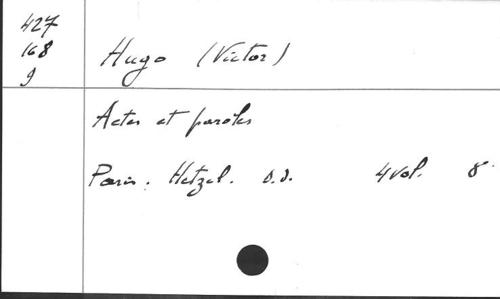 427
168
9
Hugo (Victor)
Actes et paroles
Paris. Hetzel. s.d. 4 vol. 8°